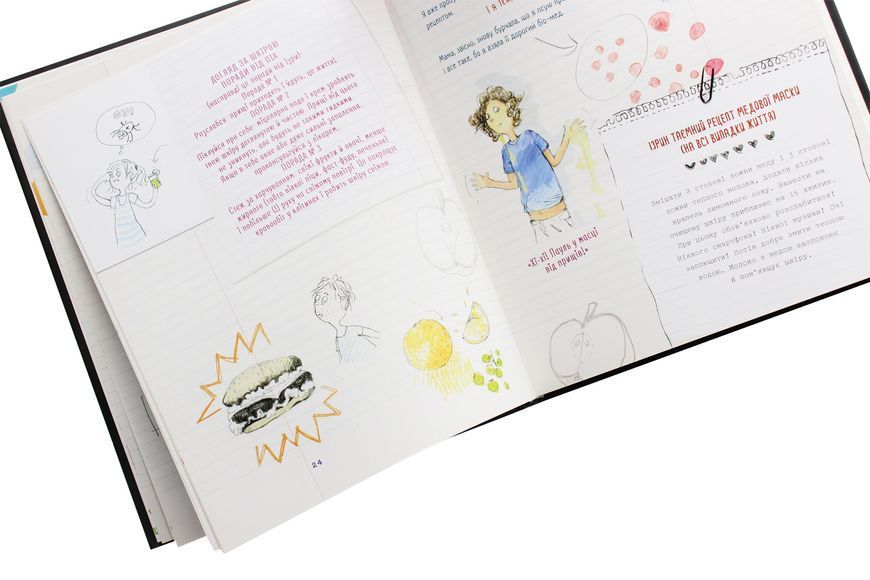 ДОГЛЯД ЗА ШКІРОЮ
ПОРАДИ ВІД ПІА
(насправді це поради від Ізри)
ПОРАДА № 1
Розслабся: прищі приходять і йдуть, це життя!
ПОРАДА № 2
Піклуйся про себе: регулярно вода і крем зроблять
твою шкіру доглянутою й чистою. Прищі від цього
не зникнуть, але будуть не такими гидкими.
Якщо в тебе акне або дуже сильні запалення,
проконсультуйся з лікарем.
ПОРАДА № 3
Стеж за харчуванням: свіжі фрукти й овочі, менше
жирного (тобто ніякої піци, фаст-фуду, печенюх)
і побільше (!) руху на свіжому повітрі. Це покращує
кровообіг у клітинах і робить шкіру свіжою.
24
Я вже
рецептом.
І Я
Мама, звісно, знову бурчала, що я псую
і все таке, бо я взяла її дорогий біо-мед.
«Хі-хі! Пауль у масці
від прищів!»
ІЗРИН ТАЄМНИЙ РЕЦЕПТ МЕДОВОЇ МАСКИ
(НА ВСІ ВИПАДКИ ЖИТТЯ)
Змішати 2 столові ложки меду і 3 столові
ложки теплого молока, додати кілька
крапель лимонного соку. Нанести на
очищену шкіру приблизно на 15 хвилин.
При цьому обов'язково розслабитися!
Ніякого смартфона! Ніякої музики! Очі
заплющити! Потім добре змити теплою
водою. Молоко з медом заспокоює
й пом'якшує шкіру.